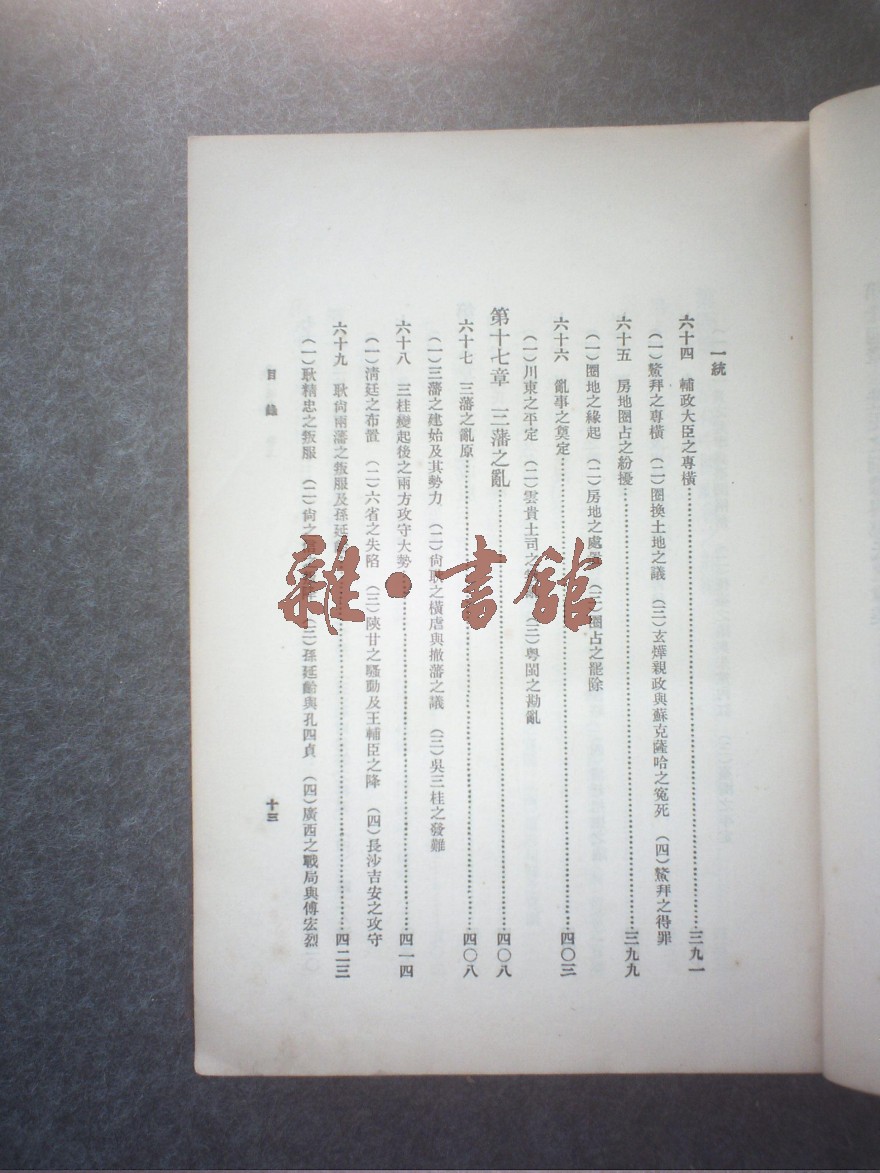 一統
六十四　輔政大臣之專橫……三九一
（一）鰲拜之專橫　（二）圈換土地之議　（三）玄燁親政與蘇克薩哈之寃死　（四）鰲拜之得罪
六十五　房地圈占之紛擾……三九九
（一）圈地之緣起　（二）房地之處　（三）圈占之罷除
六十六　亂事之奠定……四〇三
（一）川東之平定　（二）雲貴土司之　（三）粵閩之勘亂
第十七章　三藩之亂……四〇八
六十七　三藩之亂原……四〇八
（一）三藩之建始及其勢力　（二）尙耿之橫虐與撤藩之議　（三）吳三桂之發難
六十八　三桂變起後之兩方攻守大勢……四一四
（一）淸廷之布置　（二）六省之失陷　（三）陝甘之騷動及王輔臣之降　（四）長沙吉安之攻守
六十九　耿尙兩藩之叛服及孫延……四二三
（一）耿精忠之叛服　（二）尙之　（三）孫延齡與孔四貞　（四）廣西之戰局與傅宏烈
目錄
十三
雜·書館